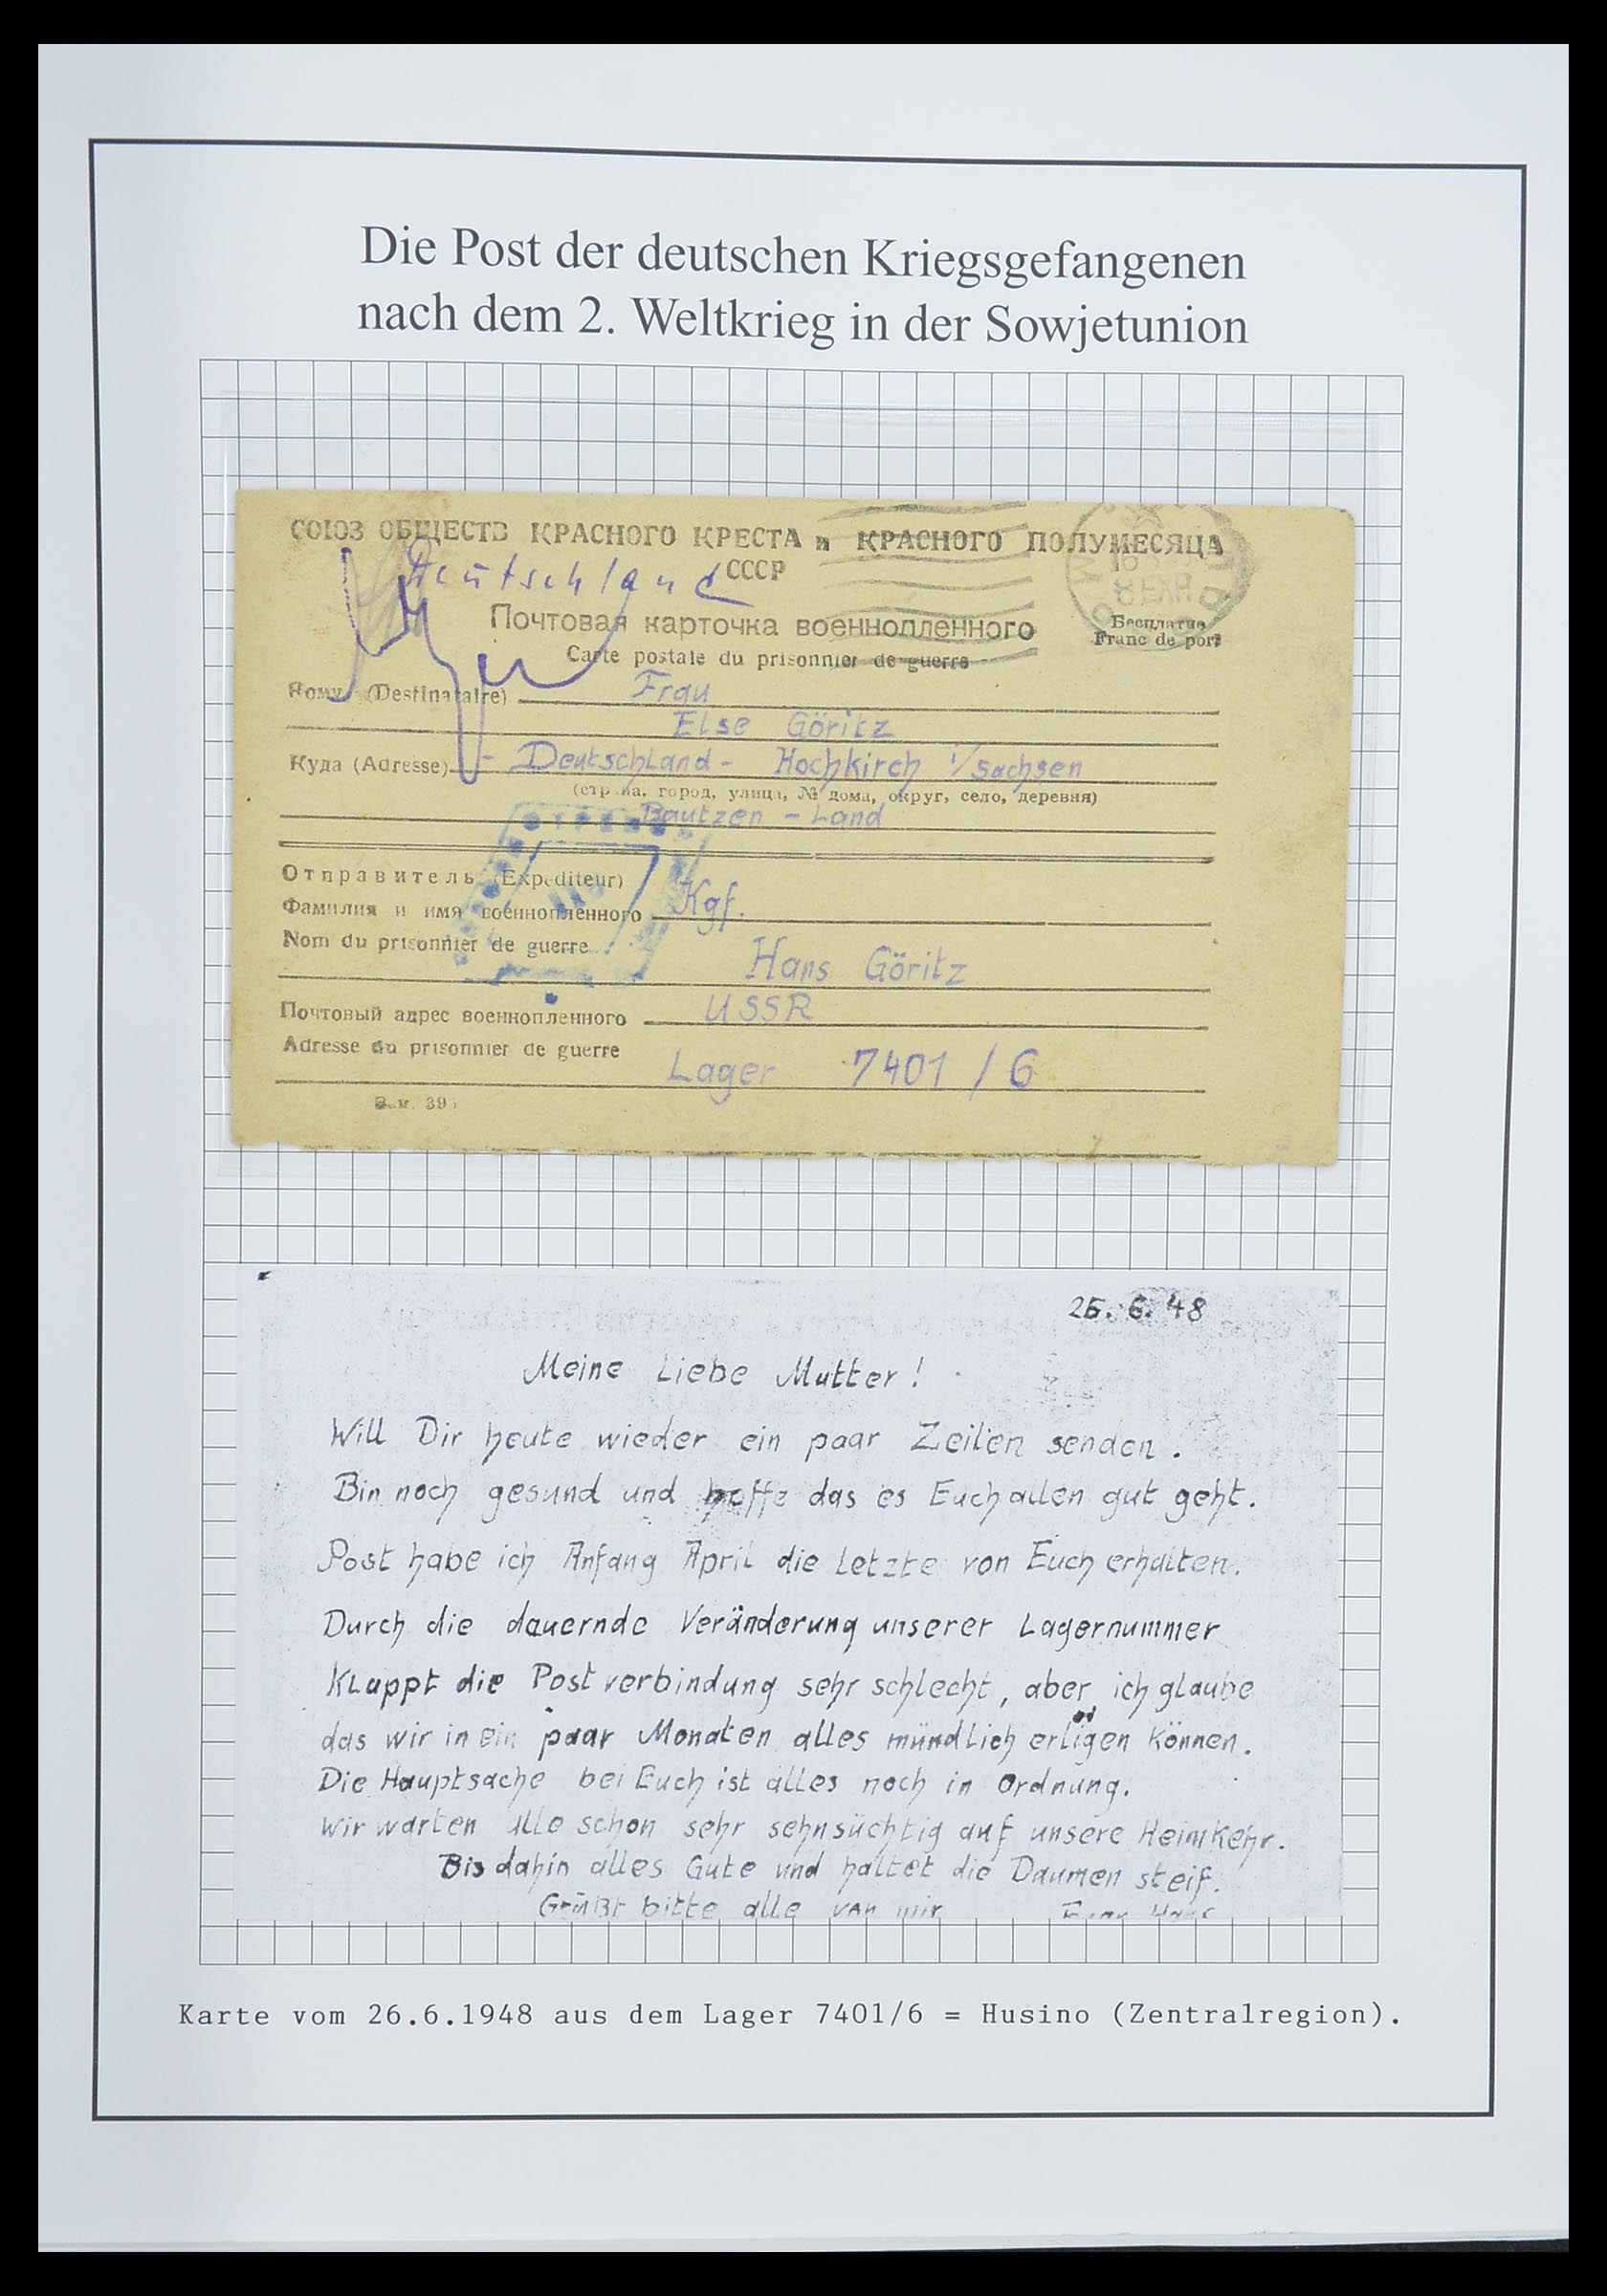 Die Post der deutschen Kriegsgefangenen
nach dem 2. Weltkrieg in der Sowjetunion
СОЮЗ ОБЩЕСТВ КРАСНОГО КРЕСТА и КРАСНОГО ПОЛУМЕСЯЦА
Deutschland СССР
Почтовая карточка военнопленного
Бесплатно
Franc de port
Carte postale du prisonnier de guerre
Кому (Destinataire) Frau
Else Göritz
Куда (Adresse) - Deutschland - Hochkirch i/Sachsen
(страна, город, улица, № дома, округ, село, деревня)
Bautzen - Land
Отправитель (Expediteur)
Фамилия и имя военнопленного Kgf.
Nom du prisonnier de guerre
Hans Göritz
Почтовый адрес военнопленного USSR
Adresse du prisonnier de guerre
Lager 7401 / 6
26. 6. 48
Meine Liebe Mutter!
Will Dir heute wieder ein paar Zeilen senden.
Bin noch gesund und hoffe das es Euch allen gut geht.
Post habe ich Anfang April die Letzte von Euch erhalten.
Durch die dauernde Veränderung unserer Lagernummer
Klappt die Postverbindung sehr schlecht, aber ich glaube
das wir in ein paar Monaten alles mündlich erledigen können.
Die Hauptsache bei Euch ist alles noch in Ordnung.
Wir warten alle schon sehr sehnsüchtig auf unsere Heimkehr.
Bis dahin alles Gute und haltet die Daumen steif.
Grüßt bitte alle von mir Euer Hans
Karte vom 26.6.1948 aus dem Lager 7401/6 = Husino (Zentralregion).